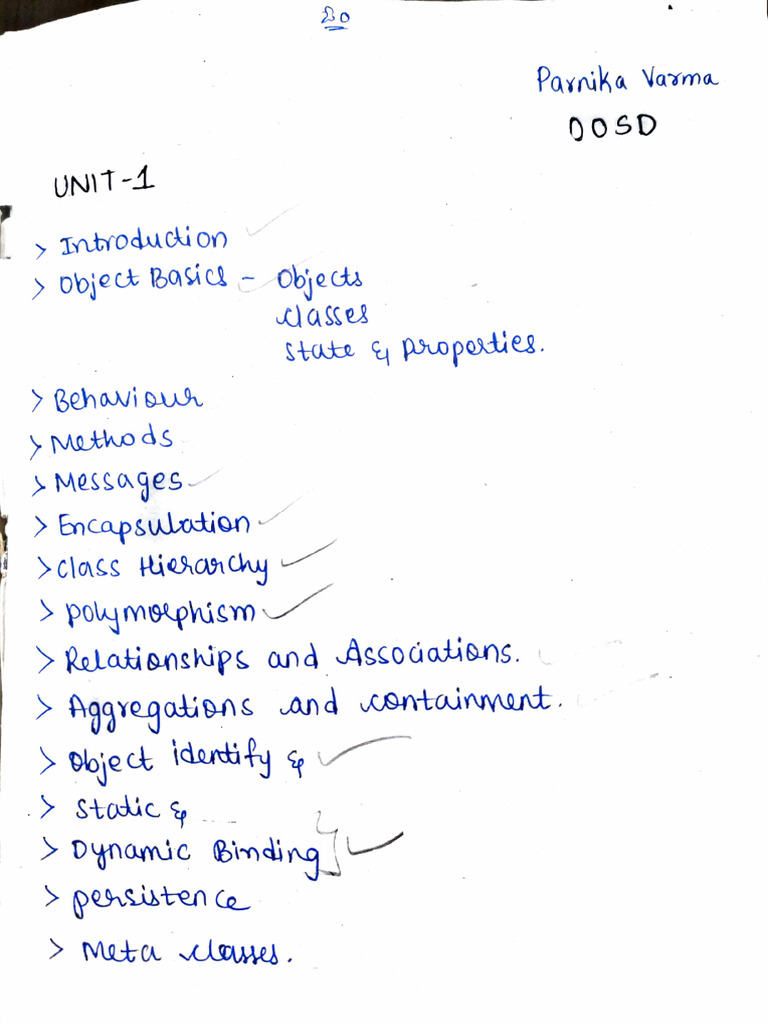 Parnika Varma
OOSD
UNIT-1
> Introduction
> Object Basics - Objects
classes
state & properties.
> Behaviour
> Methods
> Messages
> Encapsulation
> class Hierarchy
> polymorphism
> Relationships and Associations.
> Aggregations and containment.
> Object identify &
> static &
> Dynamic Binding
> persistence
> Meta classes.